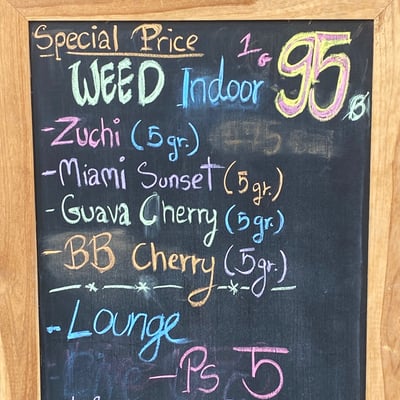 Special Price
1G 95 ฿
WEED Indoor
- Zuchi (5gr.)
- Miami Sunset (5gr.)
- Guava Cherry (5gr.)
- BB Cherry (5gr.)
- Lounge
- Ps 5